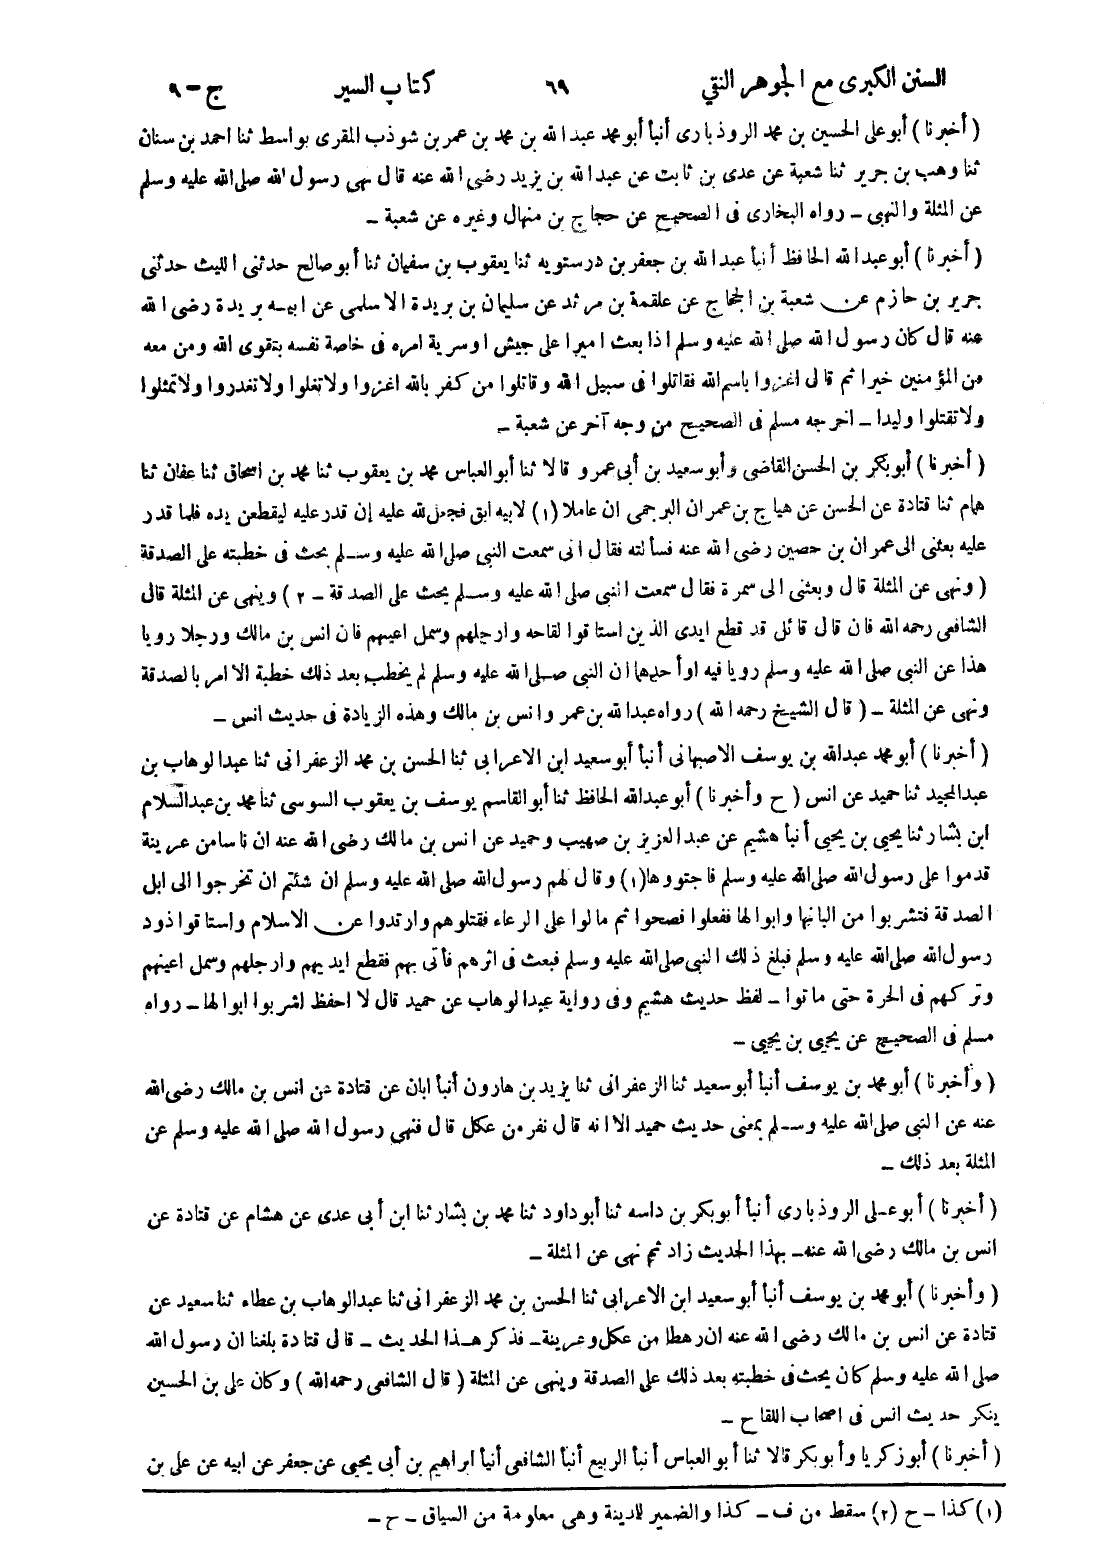 السنن الكبرى مع الجوهر النقي ٦٩ كتاب السير ج - ٩
( أخبرنا ) أبو على الحسين بن محمد الروذبارى أنبأ أبو محمد عبد الله بن محمد بن عمر بن شوذب المقرى بواسط ثنا احمد بن سنان
ثنا وهب بن جرير ثنا شعبة عن عدى بن ثابت عن عبد الله بن يزيد رضى الله عنه قال نهى رسول الله صلى الله عليه وسلم
عن المثلة والنهبى ــ رواه البخارى فى الصحيح عن حجاج بن منهال وغيره عن شعبة ــ
( أخبرنا ) أبو عبد الله الحافظ أنبأ عبد الله بن جعفر بن درستويه ثنا يعقوب بن سفيان ثنا أبو صالح حدثنى الليث حدثنى
جرير بن حازم عن شعبة بن الحجاج عن علقمة بن مرثد عن سليمان بن بريدة الاسلمى عن ابيه بريدة رضى الله
عنه قال كان رسول الله صلى الله عليه وسلم اذا بعث اميرا على جيش اوسرية امره فى خاصة نفسه بتقوى الله ومن معه
من المؤمنين خيرا ثم قال اغزوا باسم الله فقاتلوا فى سبيل الله وقاتلوا من كفر بالله اغزوا ولا تغلوا ولا تغدروا ولا تمثلوا
ولا تقتلوا وليدا ــ اخرجه مسلم فى الصحيح من وجه آخر عن شعبة ــ
( أخبرنا ) أبو بكر بن الحسن القاضى وأبو سعيد بن أبى عمرو قالا ثنا أبو العباس محمد بن يعقوب ثنا محمد بن اسحاق ثنا عفان ثنا
همام ثنا قتادة عن الحسن عن هياج بن عمران البرجمى ان عاملا (١) لابيه ابق فجعل لله عليه إن قدر عليه ليقطعن يده فلما قدر
عليه بعثنى الى عمران بن حصين رضى الله عنه فسألته فقال انى سمعت النبى صلى الله عليه وسلم يحث فى خطبته على الصدقة
( ونهى عن المثلة قال وبعثنى الى سمرة فقال سمعت النبى صلى الله عليه وسلم يحث على الصدقة ــ ٢ ) وينهى عن المثلة قال
الشافعى رحمه الله فان قال قائل قد قطع ايدى الذين استاقوا لقاحه وارجلهم وسمل اعينهم فان انس بن مالك ورجلا رويا
هذا عن النبى صلى الله عليه وسلم رويا فيه اوأحدهما ان النبى صلى الله عليه وسلم لم يخطب بعد ذلك خطبة الا امر بالصدقة
ونهى عن المثلة ــ ( قال الشيخ رحمه الله ) رواه عبد الله بن عمر وانس بن مالك وهذه الزيادة فى حديث انس ــ
( أخبرنا ) أبو محمد عبد الله بن يوسف الاصبهانى أنبأ أبو سعيد ابن الاعرابى ثنا الحسن بن محمد الزعفرانى ثنا عبد الوهاب بن
عبد المجيد ثنا حميد عن انس ( ح وأخبرنا ) أبو عبد الله الحافظ ثنا أبو القاسم يوسف بن يعقوب السوسى ثنا محمد بن عبد السلام
ابن بشار ثنا يحيى بن يحيى أنبأ هشيم عن عبد العزيز بن صهيب وحميد عن انس بن مالك رضى الله عنه ان ناسا من عرينة
قدموا على رسول الله صلى الله عليه وسلم فاجتووها (١) وقال لهم رسول الله صلى الله عليه وسلم ان شئتم ان تخرجوا الى ابل
الصدقة فتشربوا من البانها وابوالها ففعلوا فصحوا ثم مالوا على الرعاء فقتلوهم وارتدوا عن الاسلام واستاقوا ذود
رسول الله صلى الله عليه وسلم فبلغ ذلك النبى صلى الله عليه وسلم فبعث فى اثرهم فأتى بهم فقطع ايديهم وارجلهم وسمل اعينهم
وتركهم فى الحرة حتى ماتوا ــ لفظ حديث هشيم وفى رواية عبد الوهاب عن حميد قال لا احفظ اشربوا ابوالها ــ رواه
مسلم فى الصحيح عن يحيى بن يحيى ــ
( وأخبرنا ) أبو محمد بن يوسف أنبأ أبو سعيد ثنا الزعفرانى ثنا يزيد بن هارون أنبأ ابان عن قتادة عن انس بن مالك رضى الله
عنه عن النبى صلى الله عليه وسلم بمعنى حديث حميد الا انه قال نفر من عكل قال فنهى رسول الله صلى الله عليه وسلم عن
المثلة بعد ذلك ــ
( أخبرنا ) أبو على الروذبارى أنبأ أبو بكر بن داسه ثنا أبو داود ثنا محمد بن بشار ثنا ابن أبى عدى عن هشام عن قتادة عن
انس بن مالك رضى الله عنه ــ بهذا الحديث زاد ثم نهى عن المثلة ــ
( وأخبرنا ) أبو محمد بن يوسف أنبأ أبو سعيد ابن الاعرابى ثنا الحسن بن محمد الزعفرانى ثنا عبد الوهاب بن عطاء ثنا سعيد عن
قتادة عن انس بن مالك رضى الله عنه ان رهطا من عكل وعرينة ــ فذكر هذا الحديث ــ قال قتادة بلغنا ان رسول الله
صلى الله عليه وسلم كان يحث فى خطبته بعد ذلك على الصدقة وينهى عن المثلة ( قال الشافعى رحمه الله ) وكان على بن الحسين
ينكر حديث انس فى اصحاب اللقاح ــ
( أخبرنا ) أبو زكريا وأبو بكر قالا ثنا أبو العباس أنبأ الربيع أنبأ الشافعى أنبأ ابراهيم بن أبى يحيى عن جعفر عن ابيه عن على بن
(١) كذا ــ ح (٢) سقط من ف ــ كذا والضمير للمدينة وهى معلومة من السياق ــ ح ــ